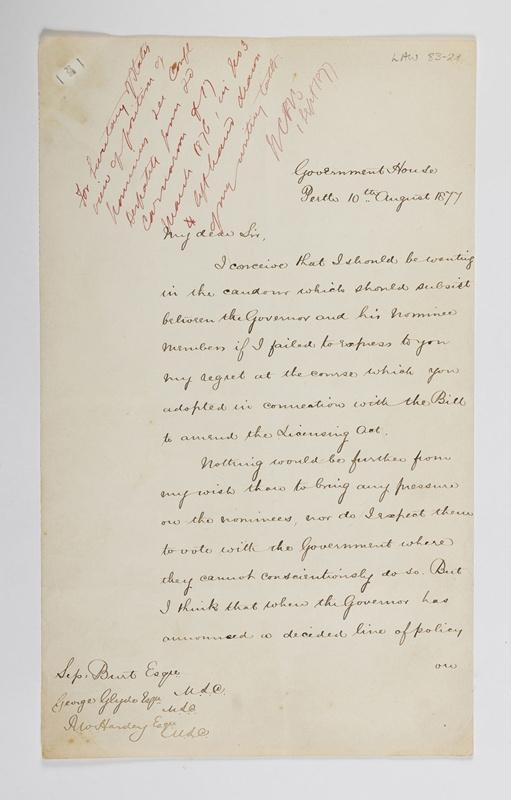 181
LAW 83-21
For Secretary of States
view of position of
nominees see Confl
despatch from Ld
Carnarvon of 17
March 1876, in No 3
left hand drawer
of my writing table.
WCFR
1 Sept 1877
Government House
Perth 10th August 1877
My dear Sir,
I conceive that I should be wanting
in the candour which should subsist
between the Governor and his Nominee
Members if I failed to express to you
my regret at the course which you
adopted in connection with the Bill
to amend the Licensing Act.
Nothing would be further from
my wish than to bring any pressure
on the nominees, nor do I expect them
to vote with the Government where
they cannot conscientiously do so. But
I think that when the Governor has
announced a decided line of policy
on
Sep: Burt Esqre
M.L.C.
George Glyde Esqre
M.L.C
Hardey Esqre
M.L.C.